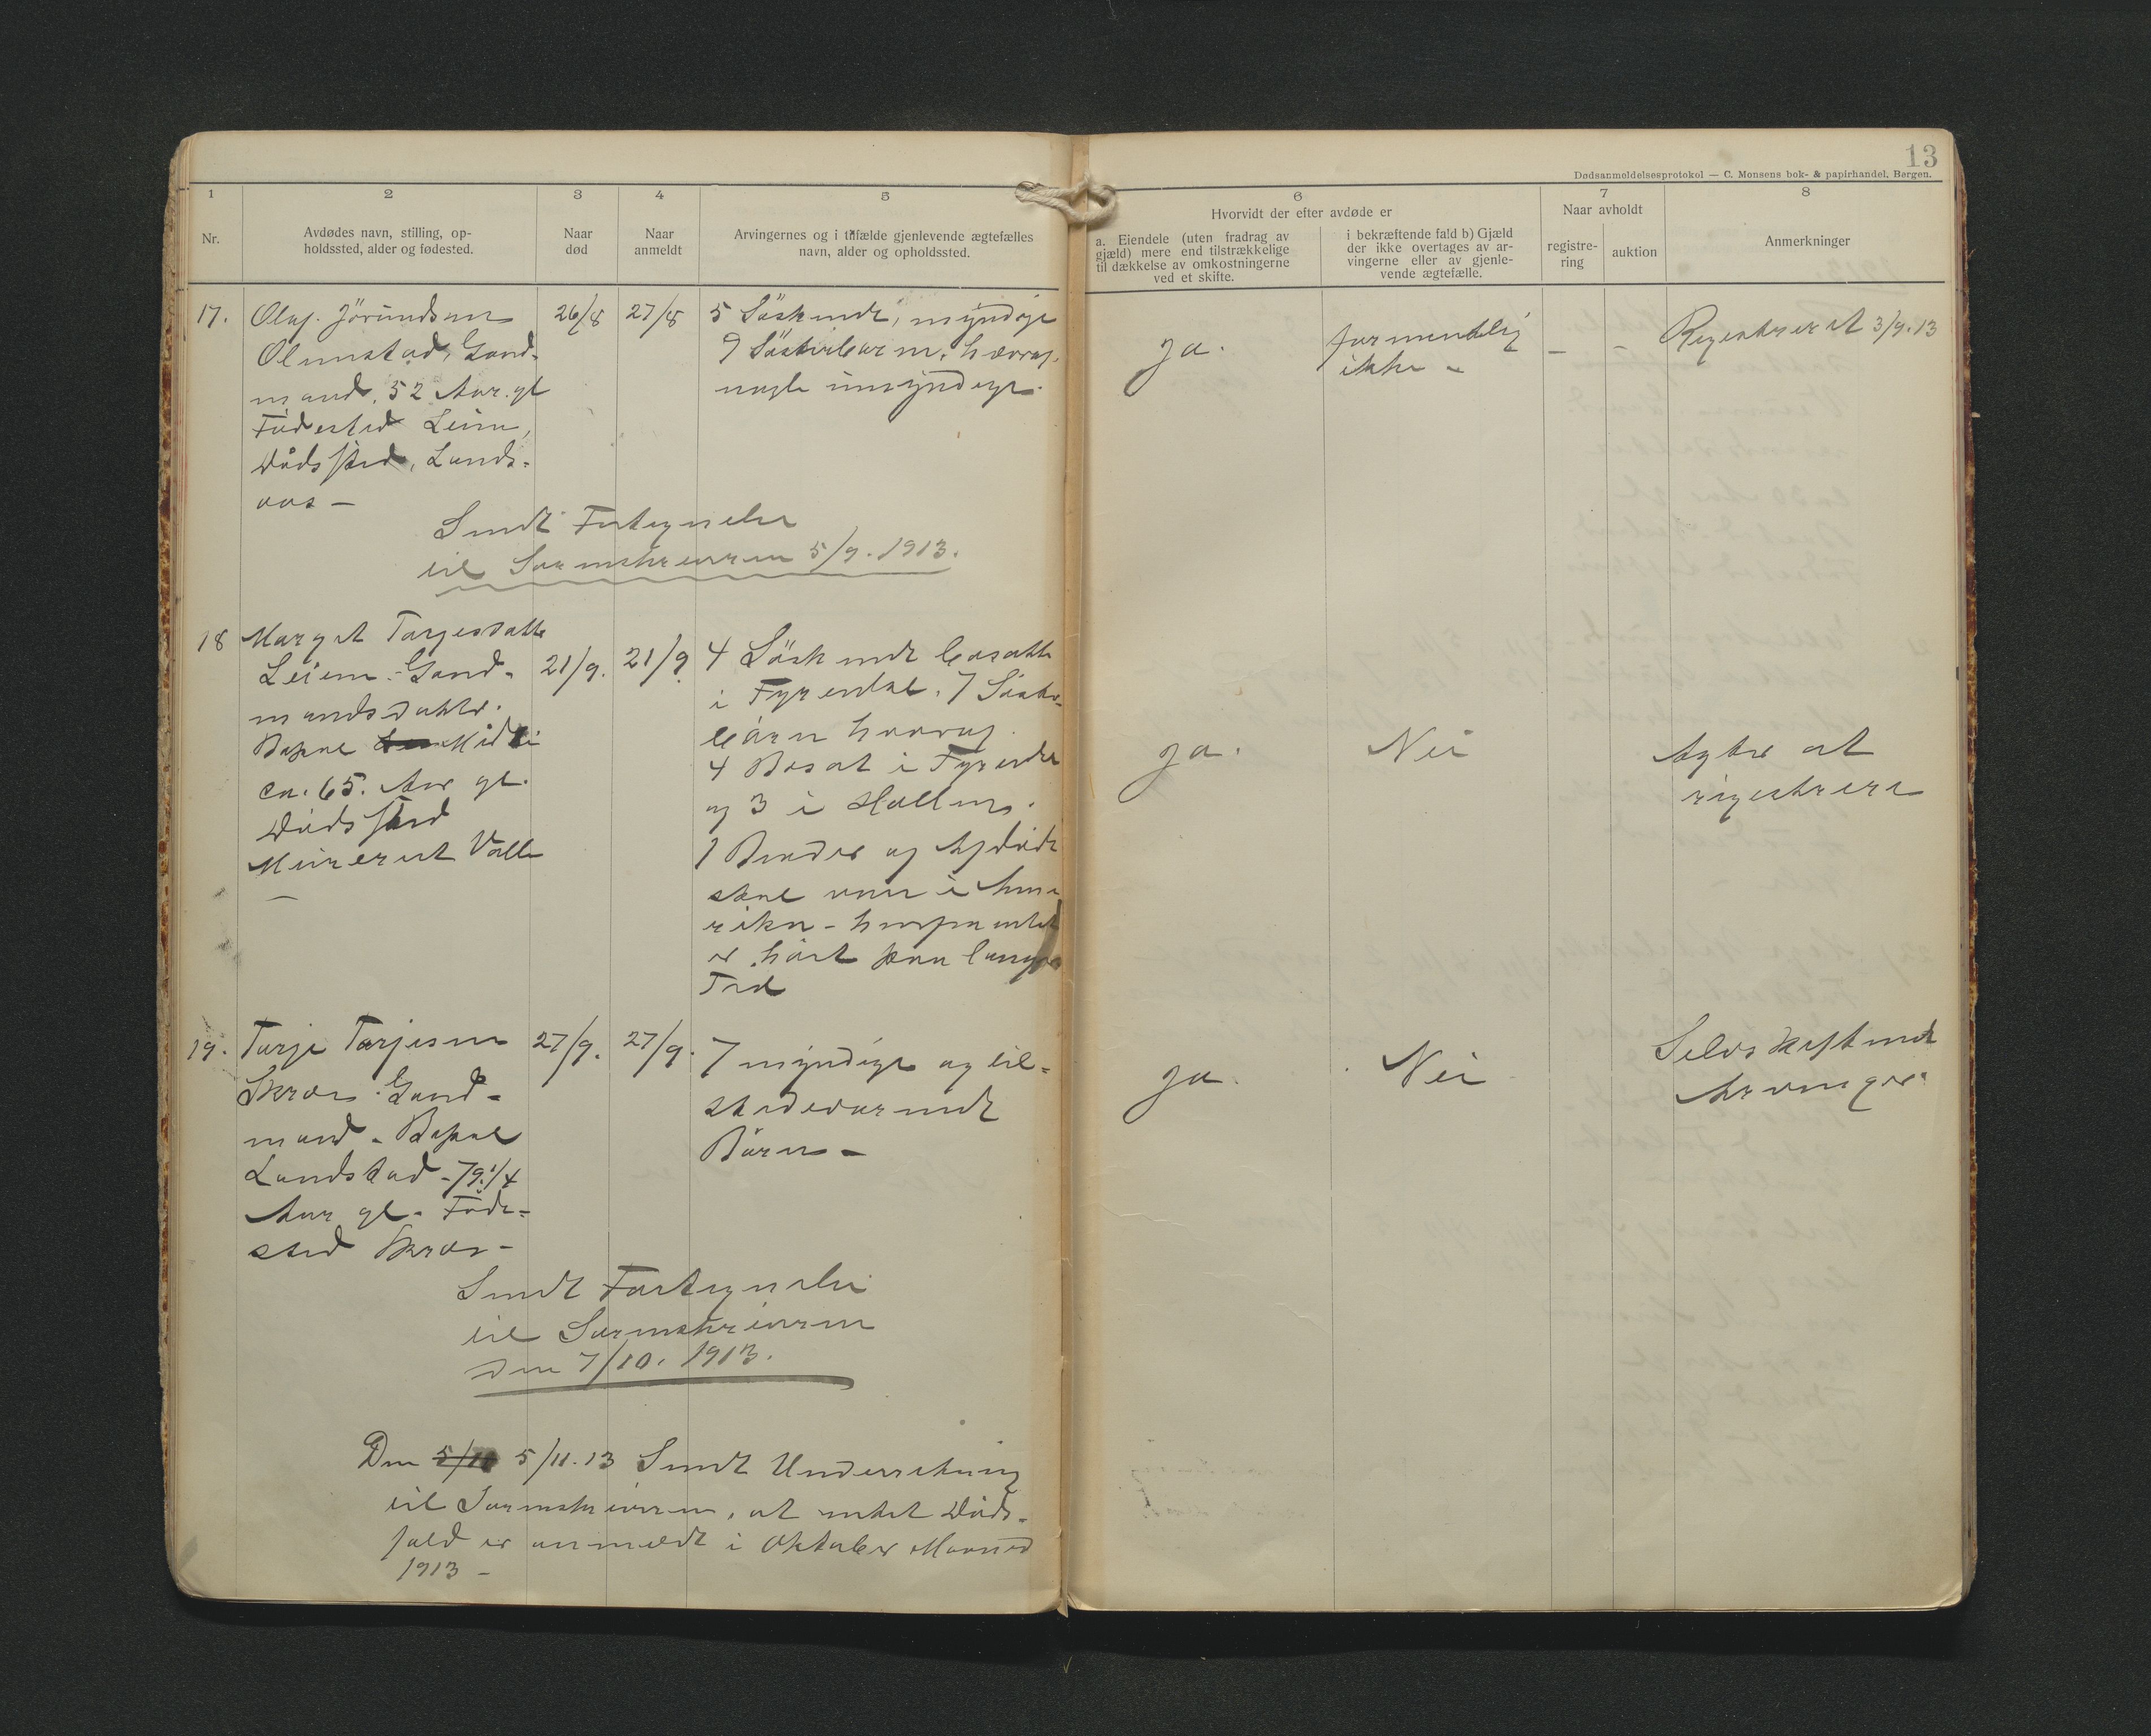 13
Dødsanmeldelsesprotokol — C. Monsens bok- & papirhandel, Bergen.
1 2 3 4 5 6 7 8
Nr.
Avdødes navn, stilling, op-
holdssted, alder og fødested.
Naar
død
Naar
anmeldt
Arvingernes og i tilfælde gjenlevende ægtefælles
navn, alder og opholdssted.
Hvorvidt der efter avdøde er
a. Eiendele (uten fradrag av
gjæld) mere end tilstrækkelige
til dækkelse av omkostningerne
ved et skifte.
i bekræftende fald b) Gjæld
der ikke overtages av ar-
vingerne eller av gjenle-
vende ægtefælle.
Naar avholdt
registre-
ring
auktion
Anmerkninger
17.
Olaf Jörundsen
Olimstad, Gaard-
mand, 52 Aar gl
Födested Leim,
Dödssted, Lands-
aas —
26/8
27/8
5 Söskende, myndige
9 Söskibarn, hvorav
nogle umyndige.
ja.
formentlig
ikke -
—
-
Registreret 3/9.13
Sendt Fortegnelse
til Sorenskriveren 5/9. 1913.
18
Margit Targesdatter
Leiem - Gaard-
mandsdatter.
Bopæl Midtli
ca. 65. Aar gl.
Dödssted
Valle
21/9.
21/9
4 Söskende bosatte
i Fyresdal. 7 Söske-
börn hvorav
4 Bosat i Fyresdal
og 3 i
1 Broder og Afdöde
skal være i Ame
rika - hvorfra intet
er hört paa langere
Tid
ja.
Nei
Agter at
registrere
19.
Tarje Tarjesen
Skraas Gaard-
mand - Bopæl
Landstad - 79 1/4
Aar gl - Föde-
sted Skraas -
27/9.
27/9.
7 myndige og til-
stedeværende
Börn -
ja.
Nei
Selvskiftende
Arvinger
Sendt Fortegnelse
til Sorenskriveren
den 7/10. 1913.
Den 5/10 5/11.13 Sendt Underretning
til Sorenskriveren, at intet Döds-
fald er anmeldt i Oktober Maaned
1913 -